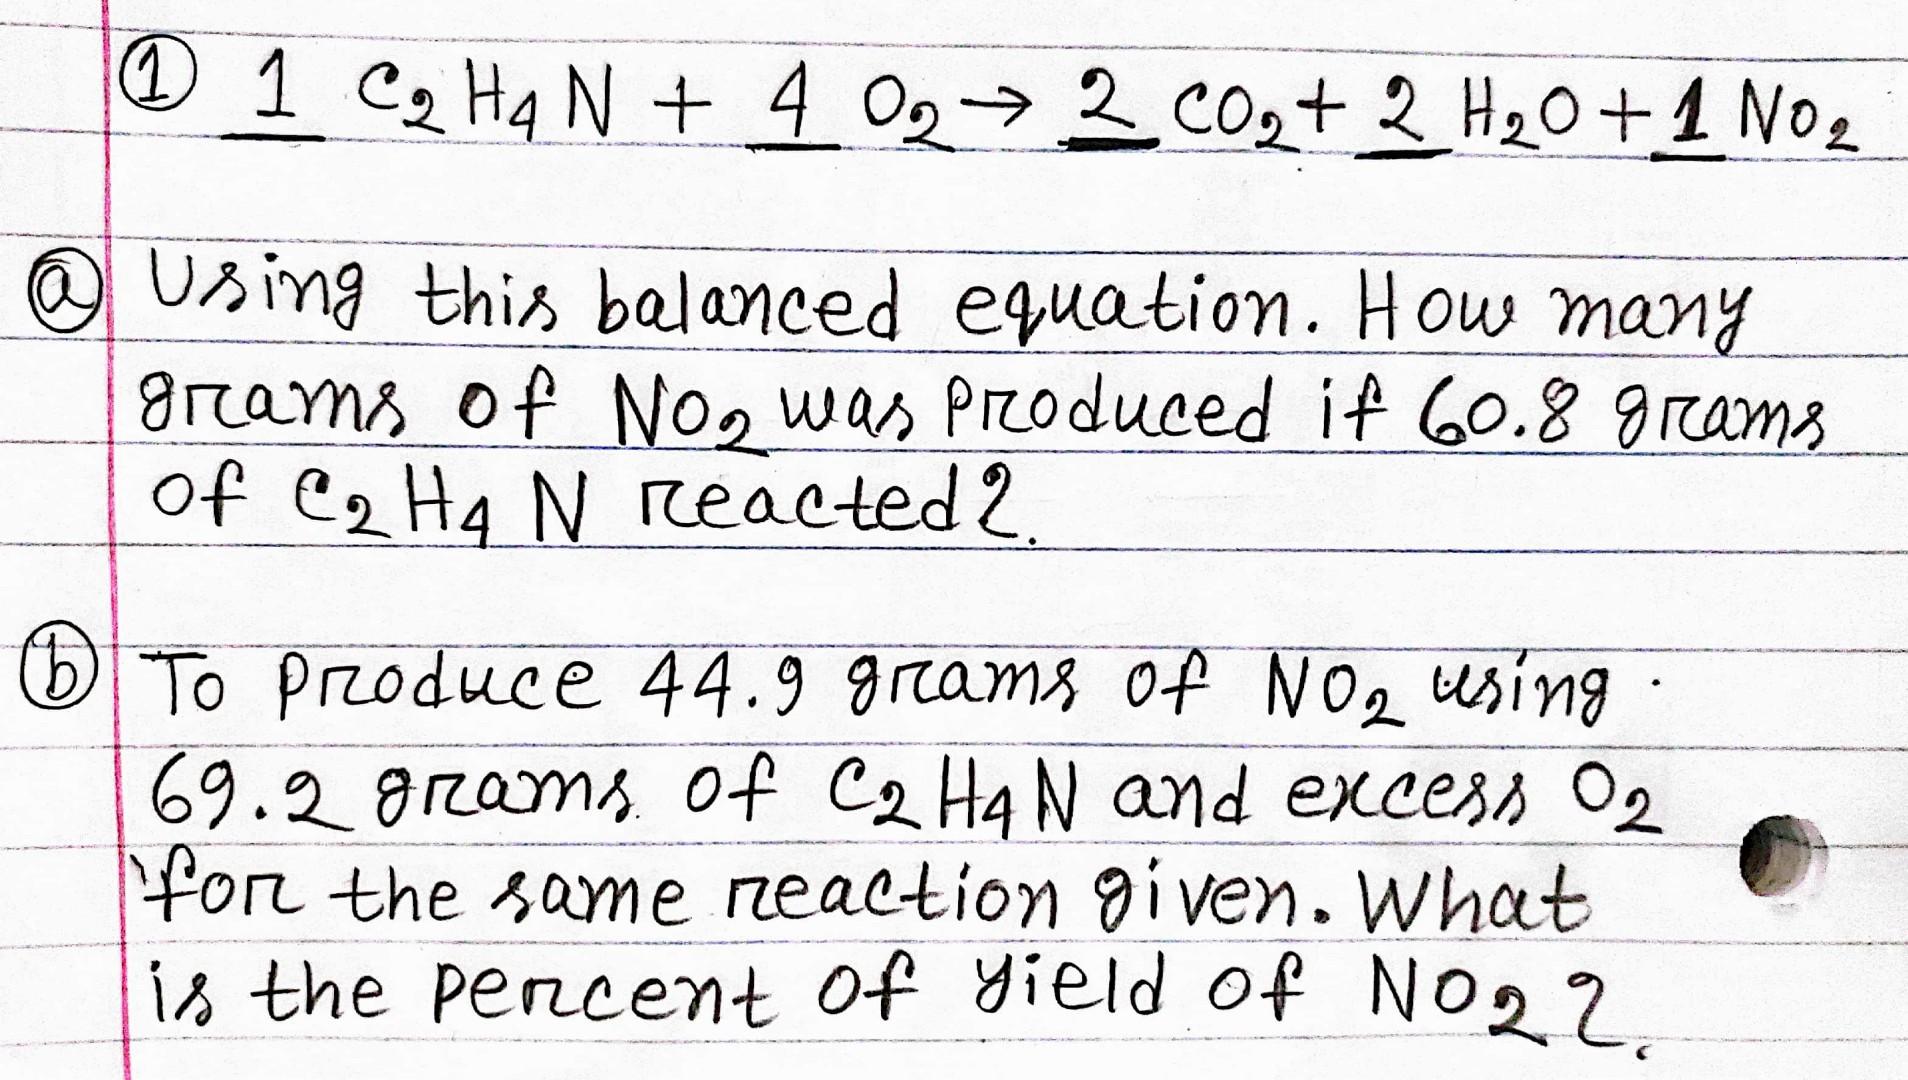 ① 1 C₂H₄N + 4 O₂ → 2 CO₂ + 2 H₂O + 1 NO₂
ⓐ Using this balanced equation. How many
grams of NO₂ was produced if 60.8 grams
of C₂H₄N reacted?.
ⓑ To produce 44.9 grams of NO₂ using
69.2 grams of C₂H₄N and excess O₂
for the same reaction given. What
is the percent of yield of NO₂?.